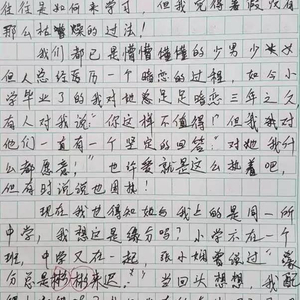 往往是如何来学习 但我觉得暑假没有
那么枯燥的过法！
我们都已是懵懵懂懂的少男少女
但人总经历历一个暗恋的过程，如今小
学毕业了的我对她总是足足暗恋三年之久
有人对我说“你这样不值得！”但我我对
他们一直有一个坚定的回答“对她我什
么都愿意！”也许爱就是这么执着吧，
但有时说说也困扰！
现在我也得知她与我上的是同一所
中学，我想这是缘分吗？小学不在一个
班，中学又在一起，张小娴曾说过“缘
分总是姗姗来迟。”当回头想想，我配